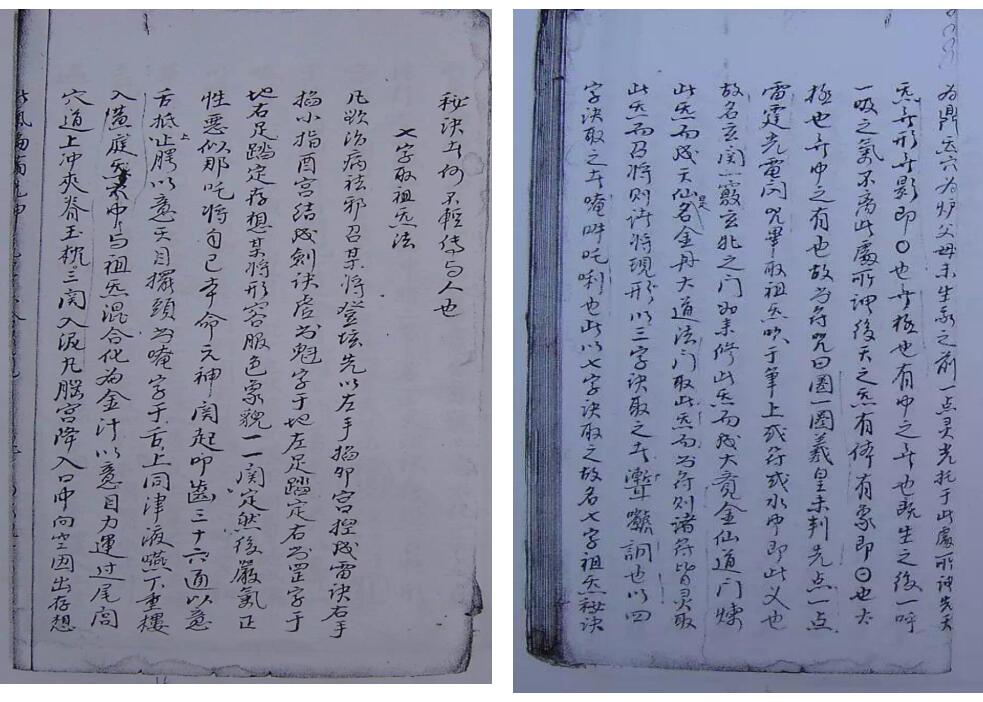 为鼎炁穴为炉父母未生之前一点灵光托于此處所謂先天
炁无形无影即〇也无極也有中之无也既生之後一呼
一吸之氣不离此處所謂後天之炁有体有象即⊙也太
極也无中之有也故书符咒曰圈一圈羲皇未判先点一点
雷霆光電閃咒畢取祖炁吹于筆上或符或水中即此义也
故名玄関一竅玄牝之门如来修此炁而成大竟金仙道门煉
此炁而成天仙是名金丹大道法门取此炁而书符则诸符皆灵取
此炁而召将则诸将現形以三字诀取之者也以四
字诀取之者唵吽吒唎也此以七字诀取之故名七字祖炁秘诀
秘诀不轻传与人也
七字取祖炁法
凡欲治病祛邪召某将登坛先以左手掐卯宫捏成雷诀右手
掐小指酉宫结成剑诀虚书魁字于地左足踏定右书罡字于
地右足踏定存想某将形容服色象貌一一関定然後嚴氣正
性恶似那吒将自己本命元神関起叩齒三十六通以意
舌抵上腭以意天目擺頭书唵字于舌上同津液嚥下重樓
入黄庭炁穴中与祖炁混合化为金汁以意目力運过尾閭
穴道上冲夾脊玉枕三関入泥丸腦宫降入口中向空因出存想